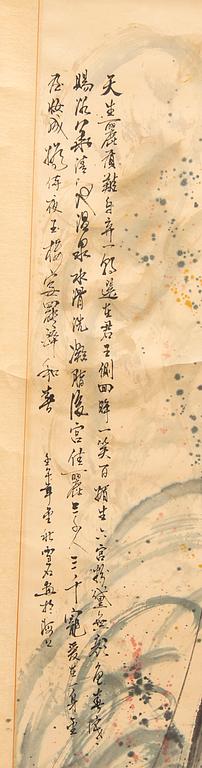 天生麗質難自弃一朝選在君王側回眸一笑百媚生六宮粉黛無顏色春寒
賜浴華清池溫泉水滑洗凝脂後宮佳麗三千人三千寵愛在一身金
屋妝成嬌侍夜玉樓宴罷醉和春
壬午年